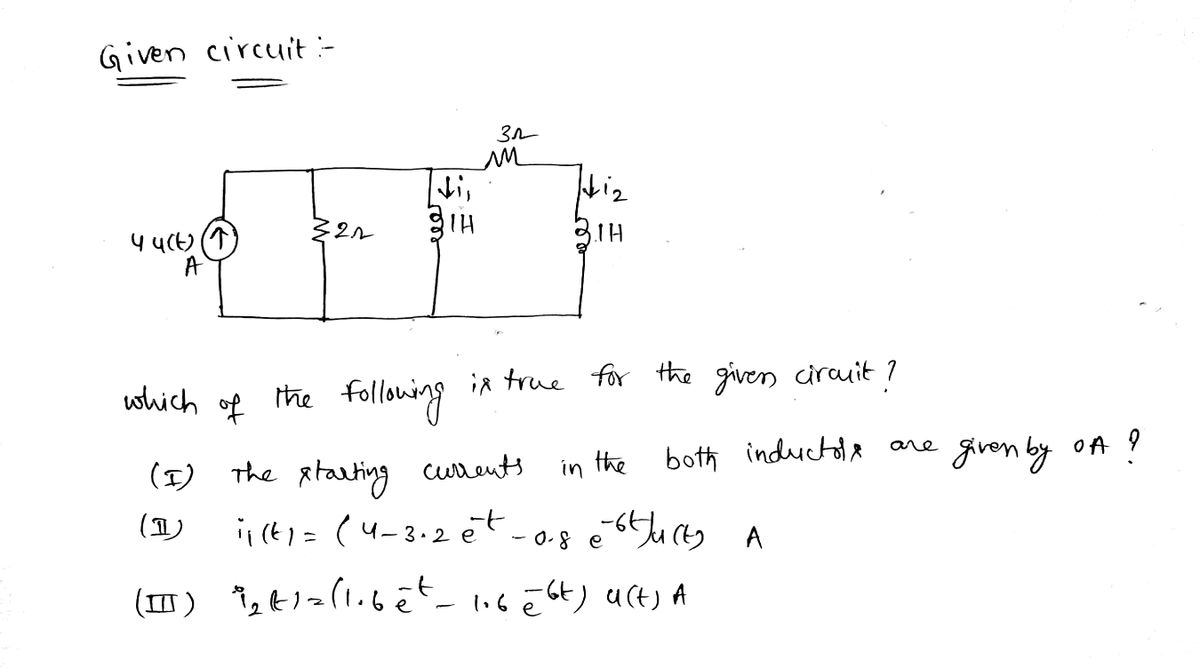 Given circuit :-
3Ω
↓i₁
↓i₂
4 u(t)
A
2Ω
1H
1H
which of the following is true for the given circuit ?
(I) The starting currents in the both inductors are given by 0A ?
(II) i₁(t) = (4-3.2 e^-t - 0.8 e^-6t)u(t) A
(III) i₂(t) = (1.6 e^-t - 1.6 e^-6t) u(t) A